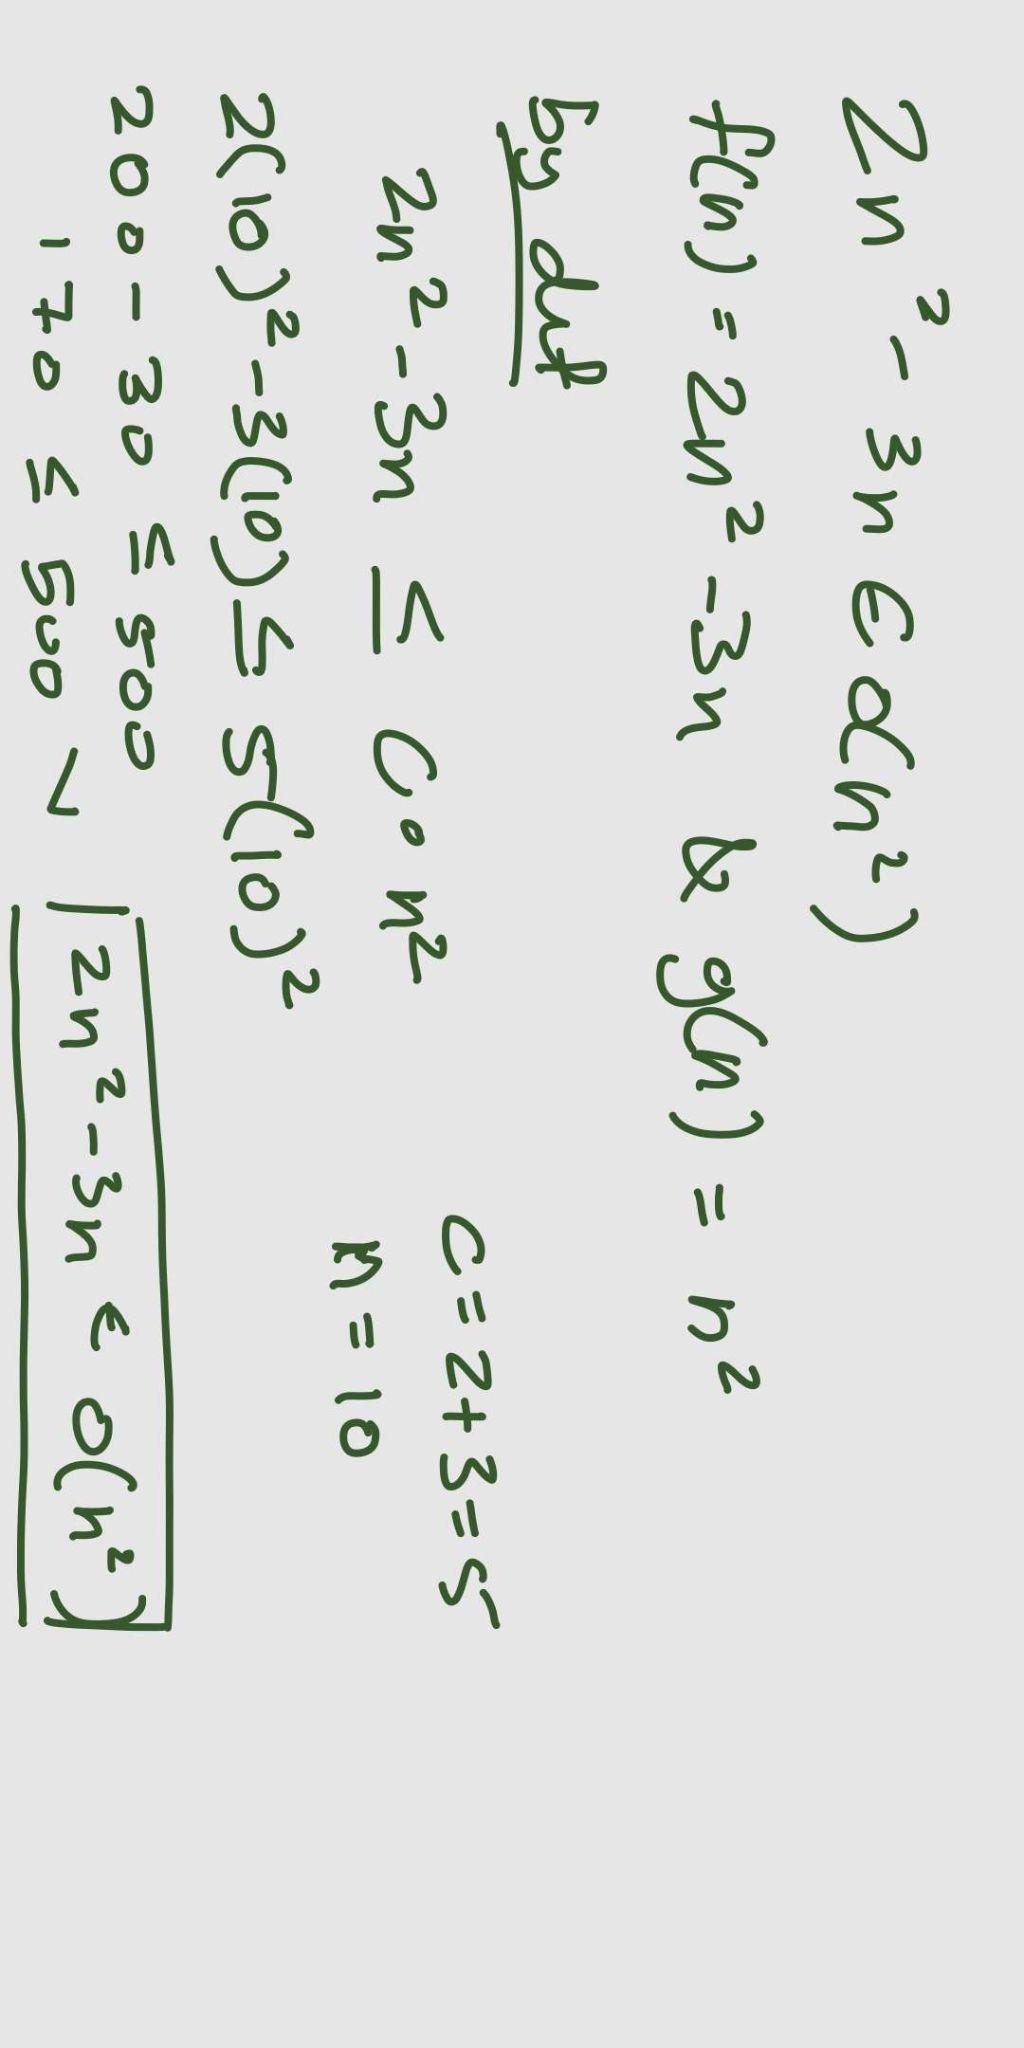 2n² - 3n ∈ O(n²)
f(n) = 2n² - 3n & g(n) = n²
by def
2n² - 3n ≤ C ∘ n²
C = 2 + 3 = 5
n = 10
2(10)² - 3(10) ≤ 5(10)²
200 - 30 ≤ 500
170 ≤ 500 ✓
2n² - 3n ∈ O(n²)